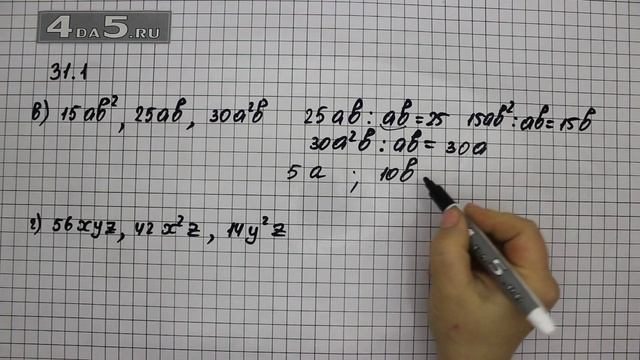 4DA5.RU
31.1
в) 15ab², 25ab, 30a²b
25ab : ab = 25 15ab² : ab = 15b
30a²b : ab = 30a
5a ; 10b
г) 56xyz, 42x²z, 14y²z